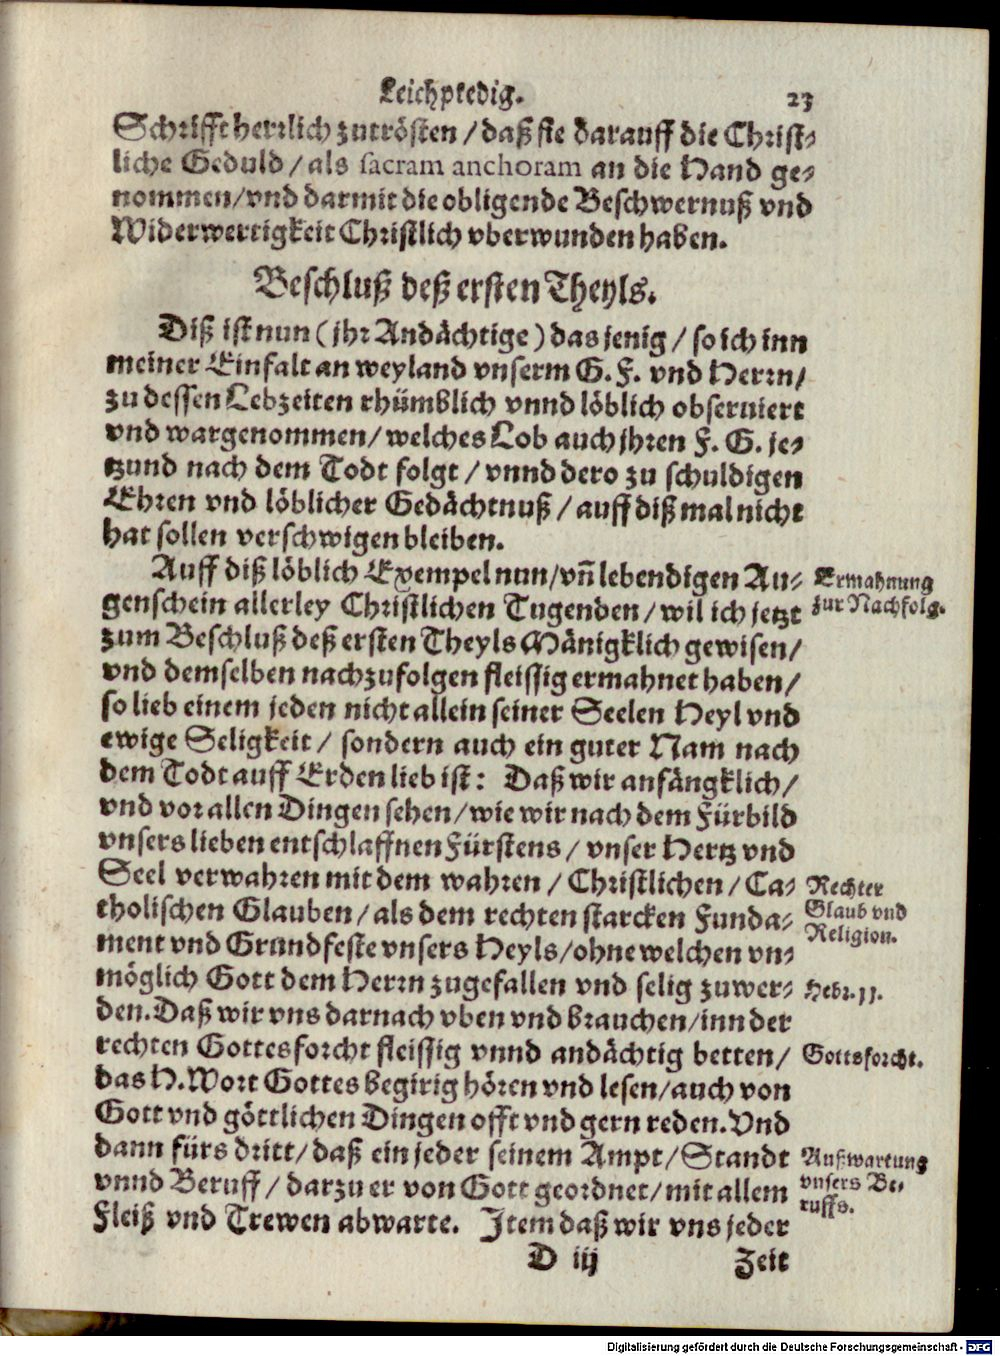 Leichpredig. 23
Schrifft herrlich zutrösten / daß sie darauff die Christ-
liche Gedult / als sacram anchoram an die Hand ge-
nommen/vnd darmit die obligende Beschwernuß vnd
Widerwertigkeit Christlich vberwunden haben.
Beschluß deß ersten Theyls.
Diß ist nun (jhr Andächtige) das jenig / so ich inn
meiner Einfalt an weyland vnserm G. F. vnd Herrn/
zu dessen Lebzeiten rhümblich vnnd löblich obseruiert
vnd wargenommen/ welches Lob auch jhren F. G. je-
tzund nach dem Todt folgt / vnnd dero zu schuldigen
Ehren vnd löblicher Gedächtnuß / auff diß mal nicht
hat sollen verschwigen bleiben.
Auff diß löblich Exempel nun/vñ lebendigen Au-
genschein allerley Christlichen Tugenden / wil ich jetzt
zum Beschluß deß ersten Theyls Mänigklich gewisen/
vnd demselben nachzufolgen fleissig ermahnet haben/
so lieb einem jeden nicht allein seiner Seelen Heyl vnd
ewige Seligkeit / sondern auch ein guter Nam nach
dem Todt auff Erden lieb ist: Daß wir anfängklich/
vnd vor allen Dingen sehen/wie wir nach dem Fürbild
vnsers lieben entschlaffnen Fürstens / vnser Hertz vnd
Seel verwahren mit dem wahren / Christlichen / Ca-
tholischen Glauben/ als dem rechten starcken Funda-
ment vnd Grundfeste vnsers Heyls/ohne welchen vn-
möglich Gott dem Herrn zugefallen vnd selig zuwer-
den. Daß wir vns darnach vben vnd brauchen/inn der
rechten Gottesforcht fleissig vnnd andächtig betten/
das H. Wort Gottes begirig hören vnd lesen/auch von
Gott vnd göttlichen Dingen offt vnd gern reden. Vnd
dann fürs dritt/ daß ein jeder seinem Ampt/Standt
vnnd Beruff / darzu er von Gott geordnet/mit allem
Fleiß vnd Trewen abwarte. Jtem daß wir vns jeder
D iij Zeit
Ermahnung
zur Nachfolg.
Rechter
Glaub vnd
Religion.
Hebr. 11.
Gottsforcht.
Außwartung
vnsers Be-
ruffs.
Digitalisierung gefördert durch die Deutsche Forschungsgemeinschaft - DFG